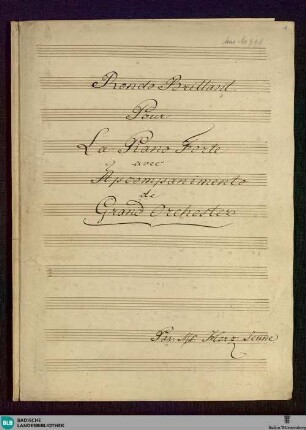 Rondo Brillant
Pour
La Piano Forte
avec
Accompanimento
de
Grand Orchester
Par Mr Herz Jeune
BLB
BADISCHE
LANDESBIBLIOTHEK
Baden-Württemberg